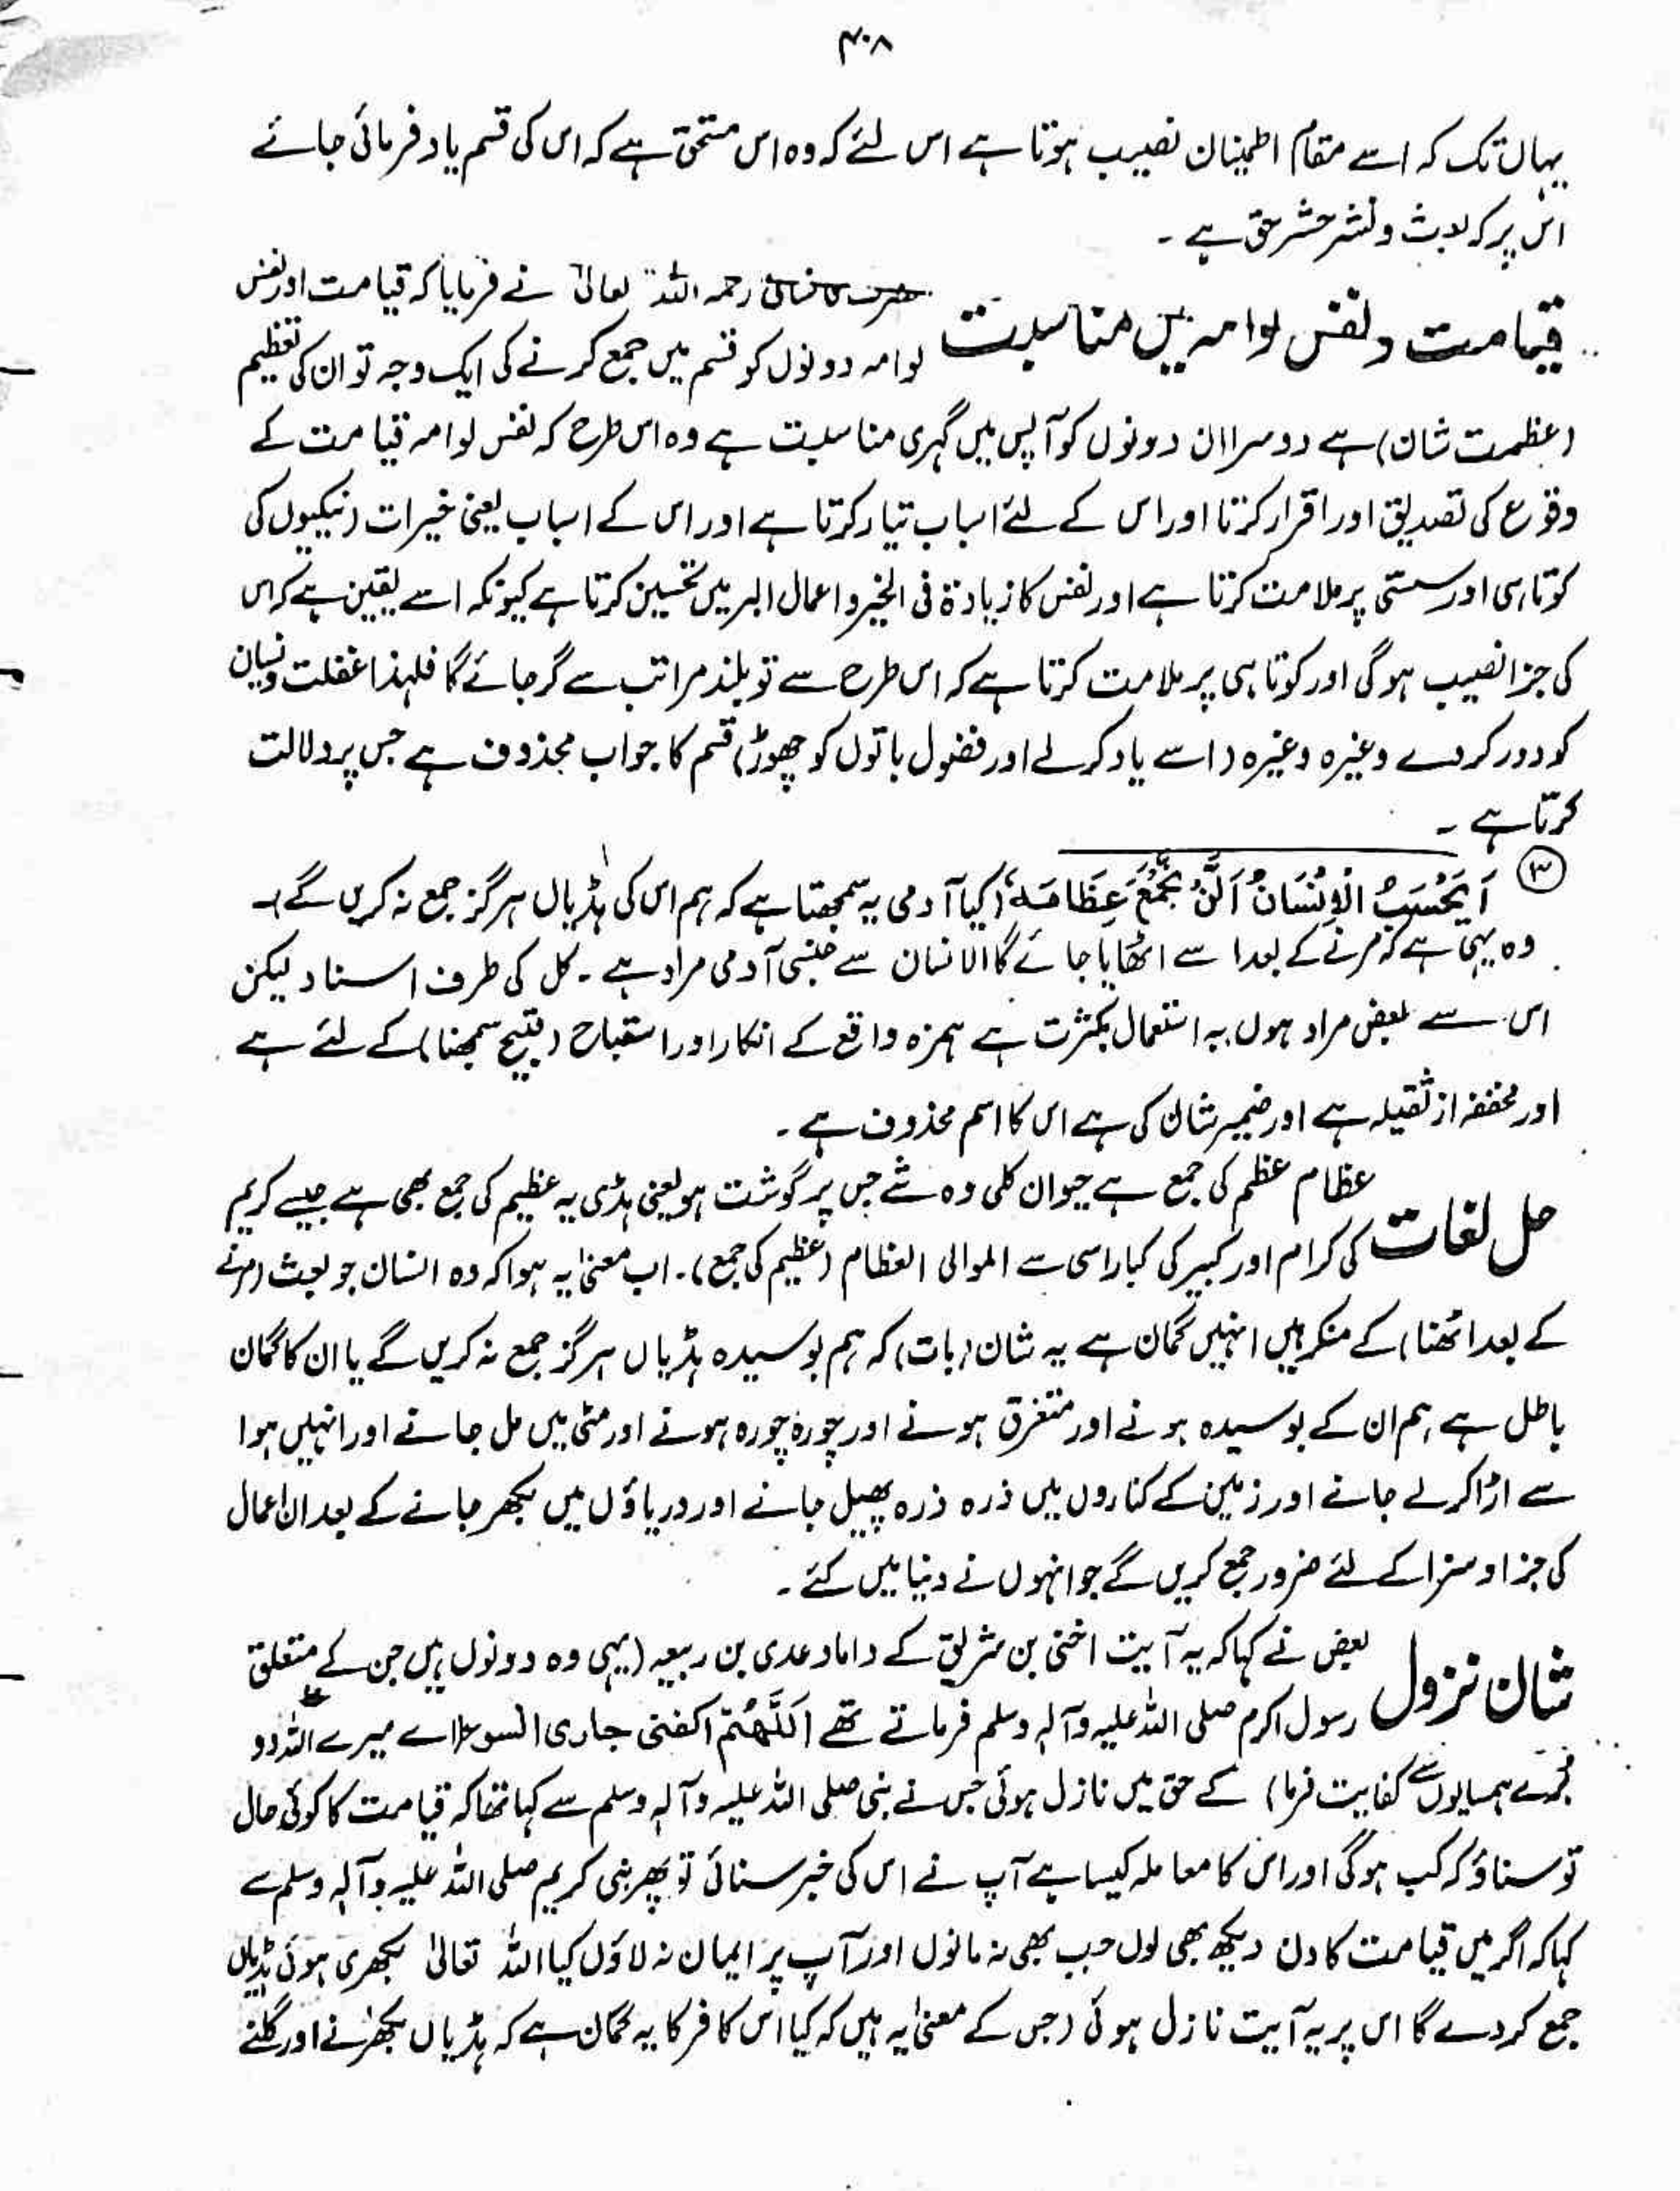 ۴۰۸
یہاں تک کہ اسے مقام اطمینان نصیب ہوتا ہے اس لئے کہ وہ اس مستحق ہے کہ اس کی قسم یاد فرمائی جائے
اس پر کہ بعث و نشر حشر حق ہے ۔
قیامت و نفس لوامہ میں مناسبت
رحمہ اللہ تعالیٰ نے فرمایا کہ قیامت اور نفس
لوامہ دونوں کو قسم میں جمع کرنے کی ایک وجہ تو ان کی تعظیم
(عظمت شان) ہے دوسرا ان دونوں کو آپس میں گہری مناسبت ہے وہ اس طرح کہ نفس لوامہ قیامت کے
وقوع کی تصدیق اور اقرار کرتا اور اس کے لئے اسباب تیار کرتا ہے اور اس کے اسباب یعنی خیرات (نیکیوں کی
کوتاہی اور سستی پر ملامت کرتا ہے اور نفس کا زیادۃ فی الخیر و اعمال البر میں تحسین کرتا ہے کیونکہ اسے یقین ہے کہ اس
کی جزا نصیب ہوگی اور کوتاہی پر ملامت کرتا ہے کہ اس طرح سے تو بلند مراتب سے گر جائے گا فلہذا غفلت و نسیان
کو دور کر دے وغیرہ وغیرہ (اسے یاد کر لے اور فضول باتوں کو چھوڑ) قسم کا جواب محذوف ہے جس پر دلالت
کرتا ہے ۔
③ اَیَحْسَبُ الْاِنْسَانُ اَلَّنْ نَّجْمَعَ عِظَامَہٗ (کیا آدمی یہ سمجھتا ہے کہ ہم اس کی ہڈیاں ہرگز جمع نہ کریں گے)۔
وہ یہی ہے کہ مرنے کے بعد اسے اٹھایا جائے گا الانسان سے جنسی آدمی مراد ہے ۔ کل کی طرف اسناد لیکن
اس سے بعض مراد ہوں یہ استعمال بکثرت ہے ہمزہ واقع کے انکار اور استقباح (قبیح سمجھنا) کے لئے ہے
اور مخففہ از ثقیلہ ہے اور ضمیر شان کی ہے اس کا اسم محذوف ہے ۔
حل لغات
عظام عظم کی جمع ہے حیوان کلی وہ شے جس پر گوشت ہو یعنی ہڈی یہ عظیم کی جمع بھی ہے جیسے کریم
کی کرام اور کبیر کی کبار اسی سے الموالی العظام (عظیم کی جمع)۔ اب معنیٰ یہ ہوا کہ وہ انسان جو بعث (مرنے
کے بعد اٹھنا) کے منکر ہیں انہیں گمان ہے یہ شان (بات) کہ ہم بوسیدہ ہڈیاں ہرگز جمع نہ کریں گے یا ان کا گمان
باطل ہے ہم ان کے بوسیدہ ہونے اور متفرق ہونے اور چورہ چورہ ہونے اور مٹی میں مل جانے اور انہیں ہوا
سے اڑا کر لے جانے اور زمین کے کناروں میں ذرہ ذرہ پھیل جانے اور دریاؤں میں بکھر جانے کے بعد ان اعمال
کی جزا و سزا کے لئے ضرور جمع کریں گے جو انہوں نے دنیا میں کئے ۔
شان نزول
بعض نے کہا کہ یہ آیت اخنی بن شریق کے داماد عدی بن ربیعہ (یہی وہ دونوں ہیں جن کے متعلق
رسول اکرم صلی اللہ علیہ وآلہٖ وسلم فرماتے تھے اَللّٰھُمَّ اکفنی جاری السوء اے میرے اللہ دو
بُرے ہمسایوں سے کفایت فرما) کے حق میں نازل ہوئی جس نے نبی صلی اللہ علیہ وآلہٖ وسلم سے کہا تھا کہ قیامت کا کوئی حال
تو سناؤ کہ کب ہوگی اور اس کا معاملہ کیسا ہے آپ نے اس کی خبر سنائی تو پھر نبی کریم صلی اللہ علیہ وآلہٖ وسلم سے
کہا کہ اگر میں قیامت کا دن دیکھ بھی لوں جب بھی نہ مانوں اور آپ پر ایمان نہ لاؤں کیا اللہ تعالیٰ بکھری ہوئی ہڈیاں
جمع کردے گا اس پر یہ آیت نازل ہوئی (جس کے معنیٰ یہ ہیں کہ کیا اس کافر کا یہ گمان ہے کہ ہڈیاں بکھرنے اور گلنے